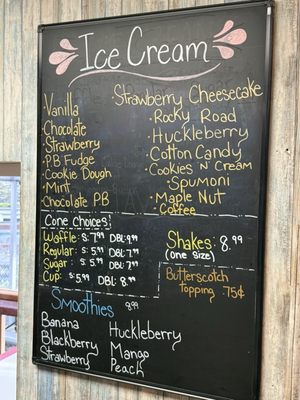 Ice Cream
· Vanilla
· Chocolate
· Strawberry
· P.B Fudge
· Cookie Dough
· Mint
· Chocolate PB
· Strawberry Cheesecake
· Rocky Road
· Huckleberry
· Cotton Candy
· Cookies N Cream
· Spumoni
· Maple Nut
· Coffee
Cone Choices:
Waffle: S: 7.99 DBL: 9.99
Regular: S: 5.99 DBL: 7.99
Sugar: S: 5.99 DBL: 7.99
Cup: S: 5.99 DBL: 8.99
Shakes: 8.99
(One Size)
Butterscotch
Topping 75¢
Smoothies 9.99
Banana
Blackberry
Strawberry
Huckleberry
Mango
Peach